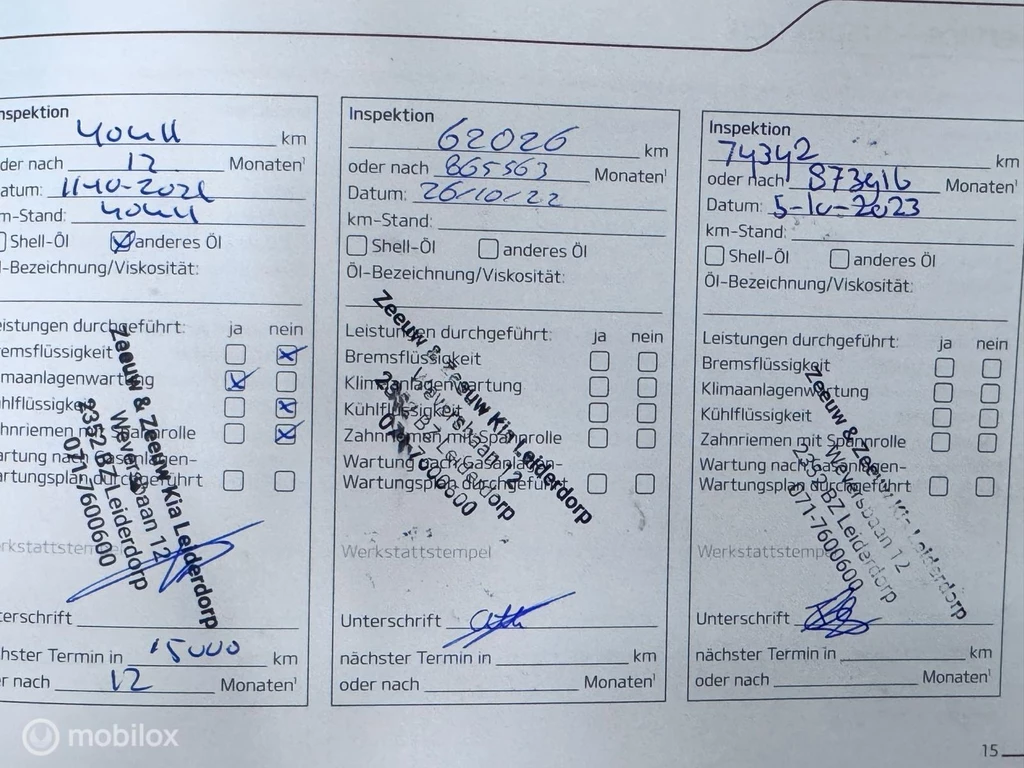 nspektion
km
der nach 12 Monaten¹
atum: 11-10-202
m-Stand:
Shell-Öl anderes Öl
l-Bezeichnung/Viskosität:
eistungen durchgeführt: ja nein
remsflüssigkeit
imaanlagenwartung
ühlflüssigke
ahnriemen mit Spannrolle
artung nach Gasanlagen-
artungsplan durchgeführt
Zeeuw & Zeeuw Kia Leiderdorp
Weversbaan 12
2352 BZ Leiderdorp
071-7600600
rkstattstempel
terschrift
hster Termin in 15000 km
r nach 12 Monaten¹
Inspektion
62026 km
oder nach 865563 Monaten¹
Datum: 26/10/22
km-Stand:
Shell-Öl anderes Öl
Öl-Bezeichnung/Viskosität:
Leistungen durchgeführt: ja nein
Bremsflüssigkeit
Klimaanlagenwartung
Kühlflüssigkeit
Zahnriemen mit Spannrolle
Wartung nach Gasanlagen-
Wartungsplan durchgeführt
Zeeuw & Zeeuw Kia Leiderdorp
Weversbaan 12
2352 BZ Leiderdorp
071-7600600
Werkstattstempel
Unterschrift
nächster Termin in km
oder nach Monaten¹
Inspektion
74342 km
oder nach 873916 Monaten¹
Datum: 5-10-2023
km-Stand:
Shell-Öl anderes Öl
Öl-Bezeichnung/Viskosität:
Leistungen durchgeführt: ja nein
Bremsflüssigkeit
Klimaanlagenwartung
Kühlflüssigkeit
Zahnriemen mit Spannrolle
Wartung nach Gasanlagen-
Wartungsplan durchgeführt
Zeeuw & Zeeuw Kia Leiderdorp
Weversbaan 12
2352 BZ Leiderdorp
071-7600600
Werkstattstempel
Unterschrift
nächster Termin in km
oder nach Monaten¹
15
mobilox